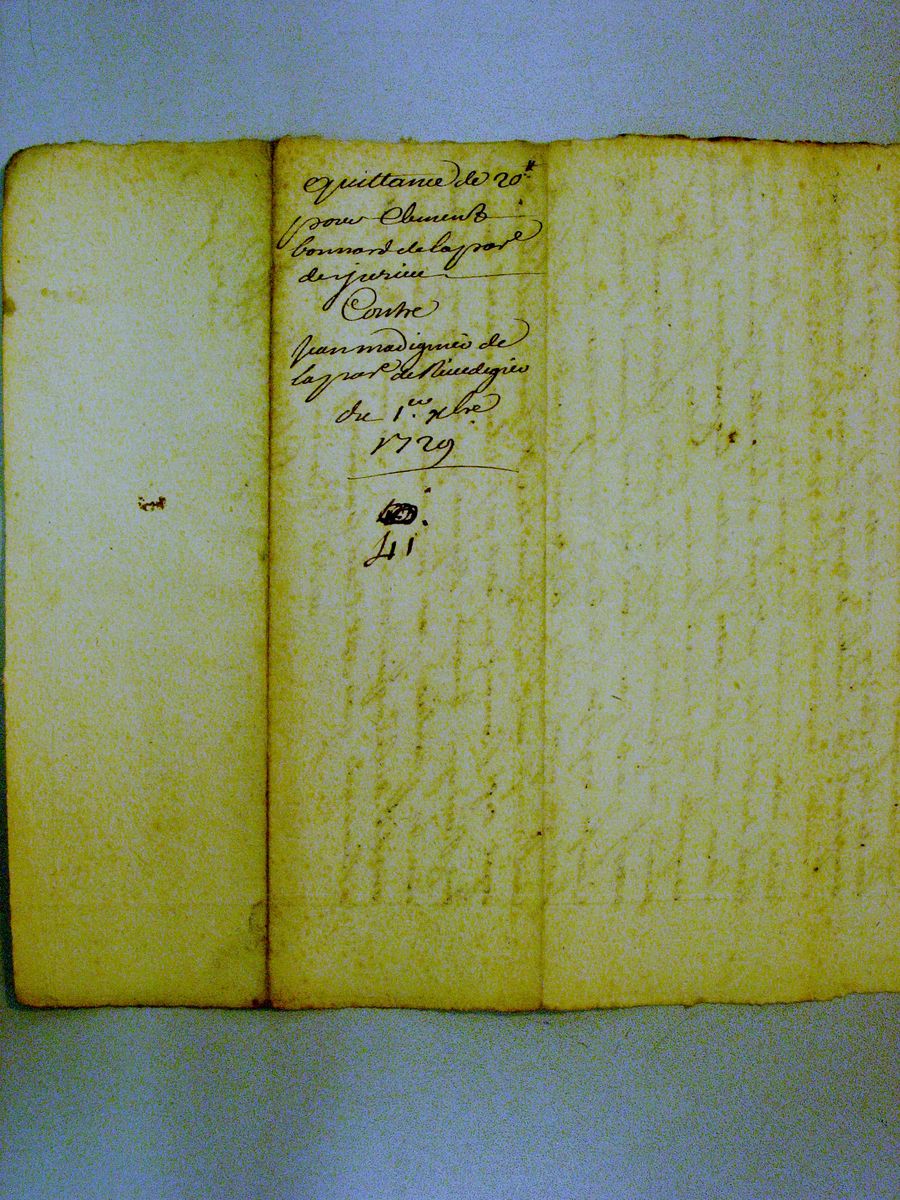 quittance de 20#
pour Clement
bonnard de la parē
de jurieu
Contre
Jean madignier de
la parē de
du 1er xbre
1729
41